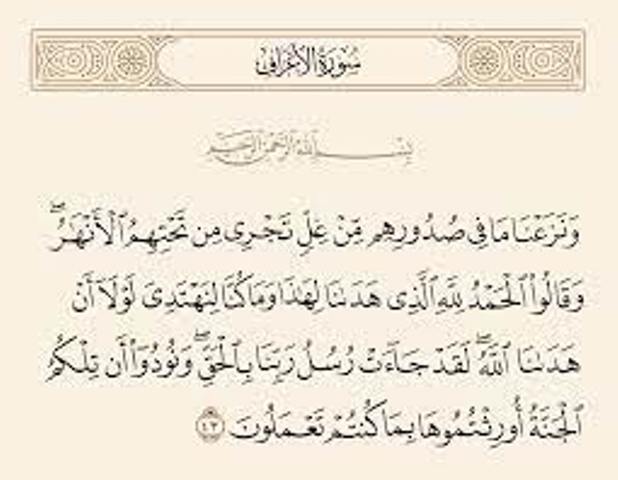 سُورَةُ الأَعْرَافِ
بِسْمِ اللَّهِ الرَّحْمَٰنِ الرَّحِيمِ
وَنَزَعْنَا مَا فِي صُدُورِهِم مِّنْ غِلٍّ تَجْرِي مِن تَحْتِهِمُ ٱلْأَنْهَٰرُ ۖ
وَقَالُوا۟ ٱلْحَمْدُ لِلَّهِ ٱلَّذِي هَدَىٰنَا لِهَٰذَا وَمَا كُنَّا لِنَهْتَدِيَ لَوْلَآ أَنْ
هَدَىٰنَا ٱللَّهُ ۖ لَقَدْ جَآءَتْ رُسُلُ رَبِّنَا بِٱلْحَقِّ ۖ وَنُودُوٓا۟ أَن تِلْكُمُ
ٱلْجَنَّةُ أُورِثْتُمُوهَا بِمَا كُنتُمْ تَعْمَلُونَ ٤٣